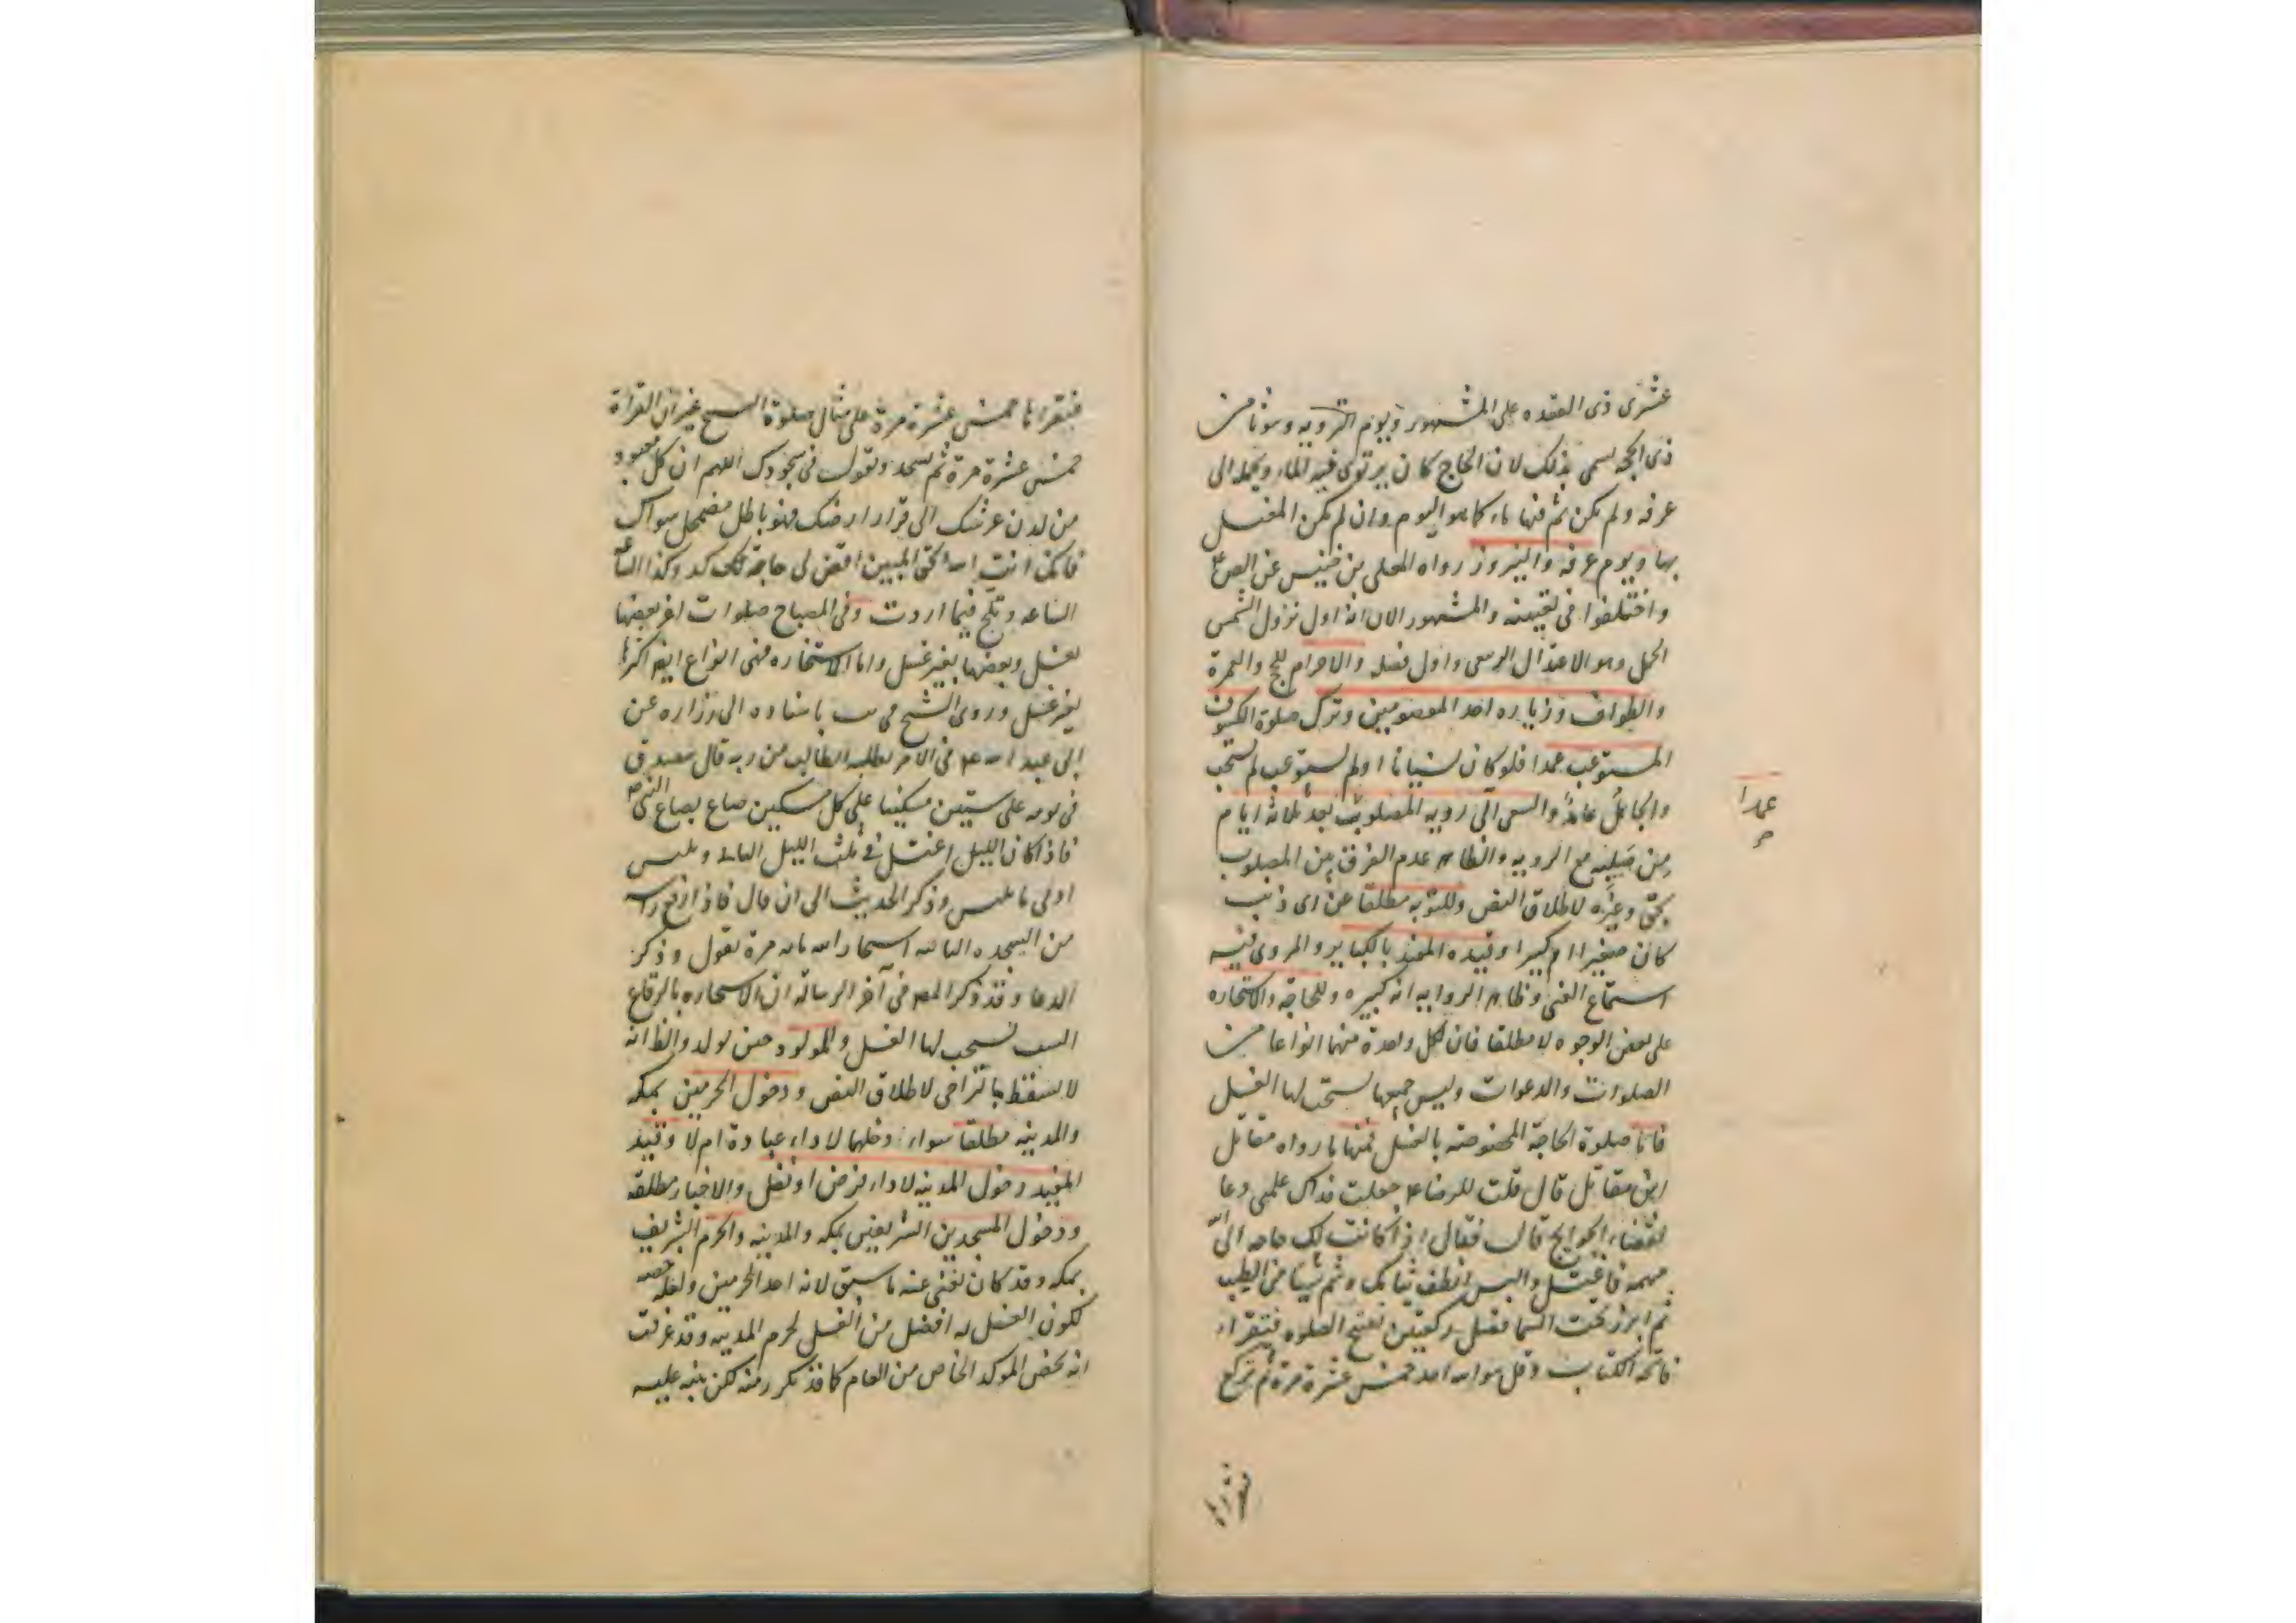 عشرى ذى القعده على المشهور ويوم التروية وهو ثامن
ذى الحجه سمى بذلك لان الحاج كان يرتوى فيه الماء ويحمله الى
عرفه ولم يكن ثم فيها ماء كما هو اليوم وان لم يكن المغتسل
بها ويوم عرفه والنيروز رواه المعلى بن خنيس عن الص ع
واختلفوا فى تعيينه والمشهور الان انه اول نزول الشمس
الحمل وهو الاعتدال الربيعى واول فصله والاحرام للحج والعمرة
والطواف وزياره احد المعصومين وترك صلوة الكسوف
المستوعب عمدا فلو كان نسيانا او لم يستوعب لم يستحب
والجاهل عامد والسعى الى رويه المصلوب بعد ثلاثه ايام
من صلبه مع الرويه والظاهر عدم الفرق بين المصلوب
بحق وغيره لاطلاق النص وللتوبه مطلقا عن اى ذنب
كان صغيرا ام كبيرا وقيده المفيد بالكباير والمروى فيه
استماع الغنى وظاهر الروايه انه كبيره وللحاجه والاستخاره
على بعض الوجوه لا مطلقا فان لكل واحدة منهما انواعا من
الصلوات والدعوات وليس جميعها يستحب لها الغسل
فاما صلوة الحاجة المخصوصه بالغسل فمنها ما رواه مقاتل
ابن مقاتل قال قلت للرضا ع جعلت فداك علمنى دعا
لقضاء الحوايج قال فقال اذا كانت لك حاجه الى الله
مهمه فاغتسل والبس انظف ثيابك وشم شيئا من الطيب
ثم ابرز تحت السما فصل ركعتين تفتتح الصلوه فتقراء
فاتحه الكتاب وقل هو الله احد خمس عشرة مرة ثم تركع
عمدا
فتقراها
فتقراها خمس عشرة مرة على مثال صلوة التسبيح غير ان القراة
خمس عشرة مرة ثم تسجد وتقول فى سجودك اللهم ان كل معبود
من لدن عرشك الى قرار ارضك فهو باطل مضمحل سواك
فانك انت الله الحق المبين اقض لى حاجة كذا وكذا الساعه
الساعه وتلح فيما اردت وفى المصباح صلوات اخر بعضها
بغسل وبعضها بغير غسل واما الاستخاره فهى انواع ايضا اكثرها
بغير غسل وروى الشيخ فى يب باسناده الى زراره عن
ابى عبد الله ع فى الامر يطلبه الطالب من ربه قال تصدق
فى يومه على ستين مسكينا على كل مسكين صاع بصاع النبى ص
فاذا كان الليل اغتسل فى ثلث الليل الباقى ويلبس
ادنى ما يلبس وذكر الحديث الى ان قال فاذا رفع راسه
من السجده الثانيه استخار الله مائه مرة يقول وذكر
الدعا وقد ذكر المص فى آخر الرسالة ان الاستخاره بالرقاع
الست يستحب لها الغسل والمولود حين يولد والظ انه
لا يسقط بالتراخى لاطلاق النص ودخول الحرمين بمكه
والمدينه مطلقا سواء دخلهما لاداء عبادة ام لا وقيد
المفيد دخول المدينه لاداء فرض او نفل والاخبار مطلقه
ودخول المسجدين الشريفين بمكه والمدينه والحرم الشريف
بمكه وقد كان يغنى عنه ما سبق لانه احد الحرمين ولعله خصه
لكون الغسل له افضل من الغسل لحرم المدينه وقد عرفت
انه يخص الموكد الخاص من العام كما قد تكرر منه لكن ينبه عليه